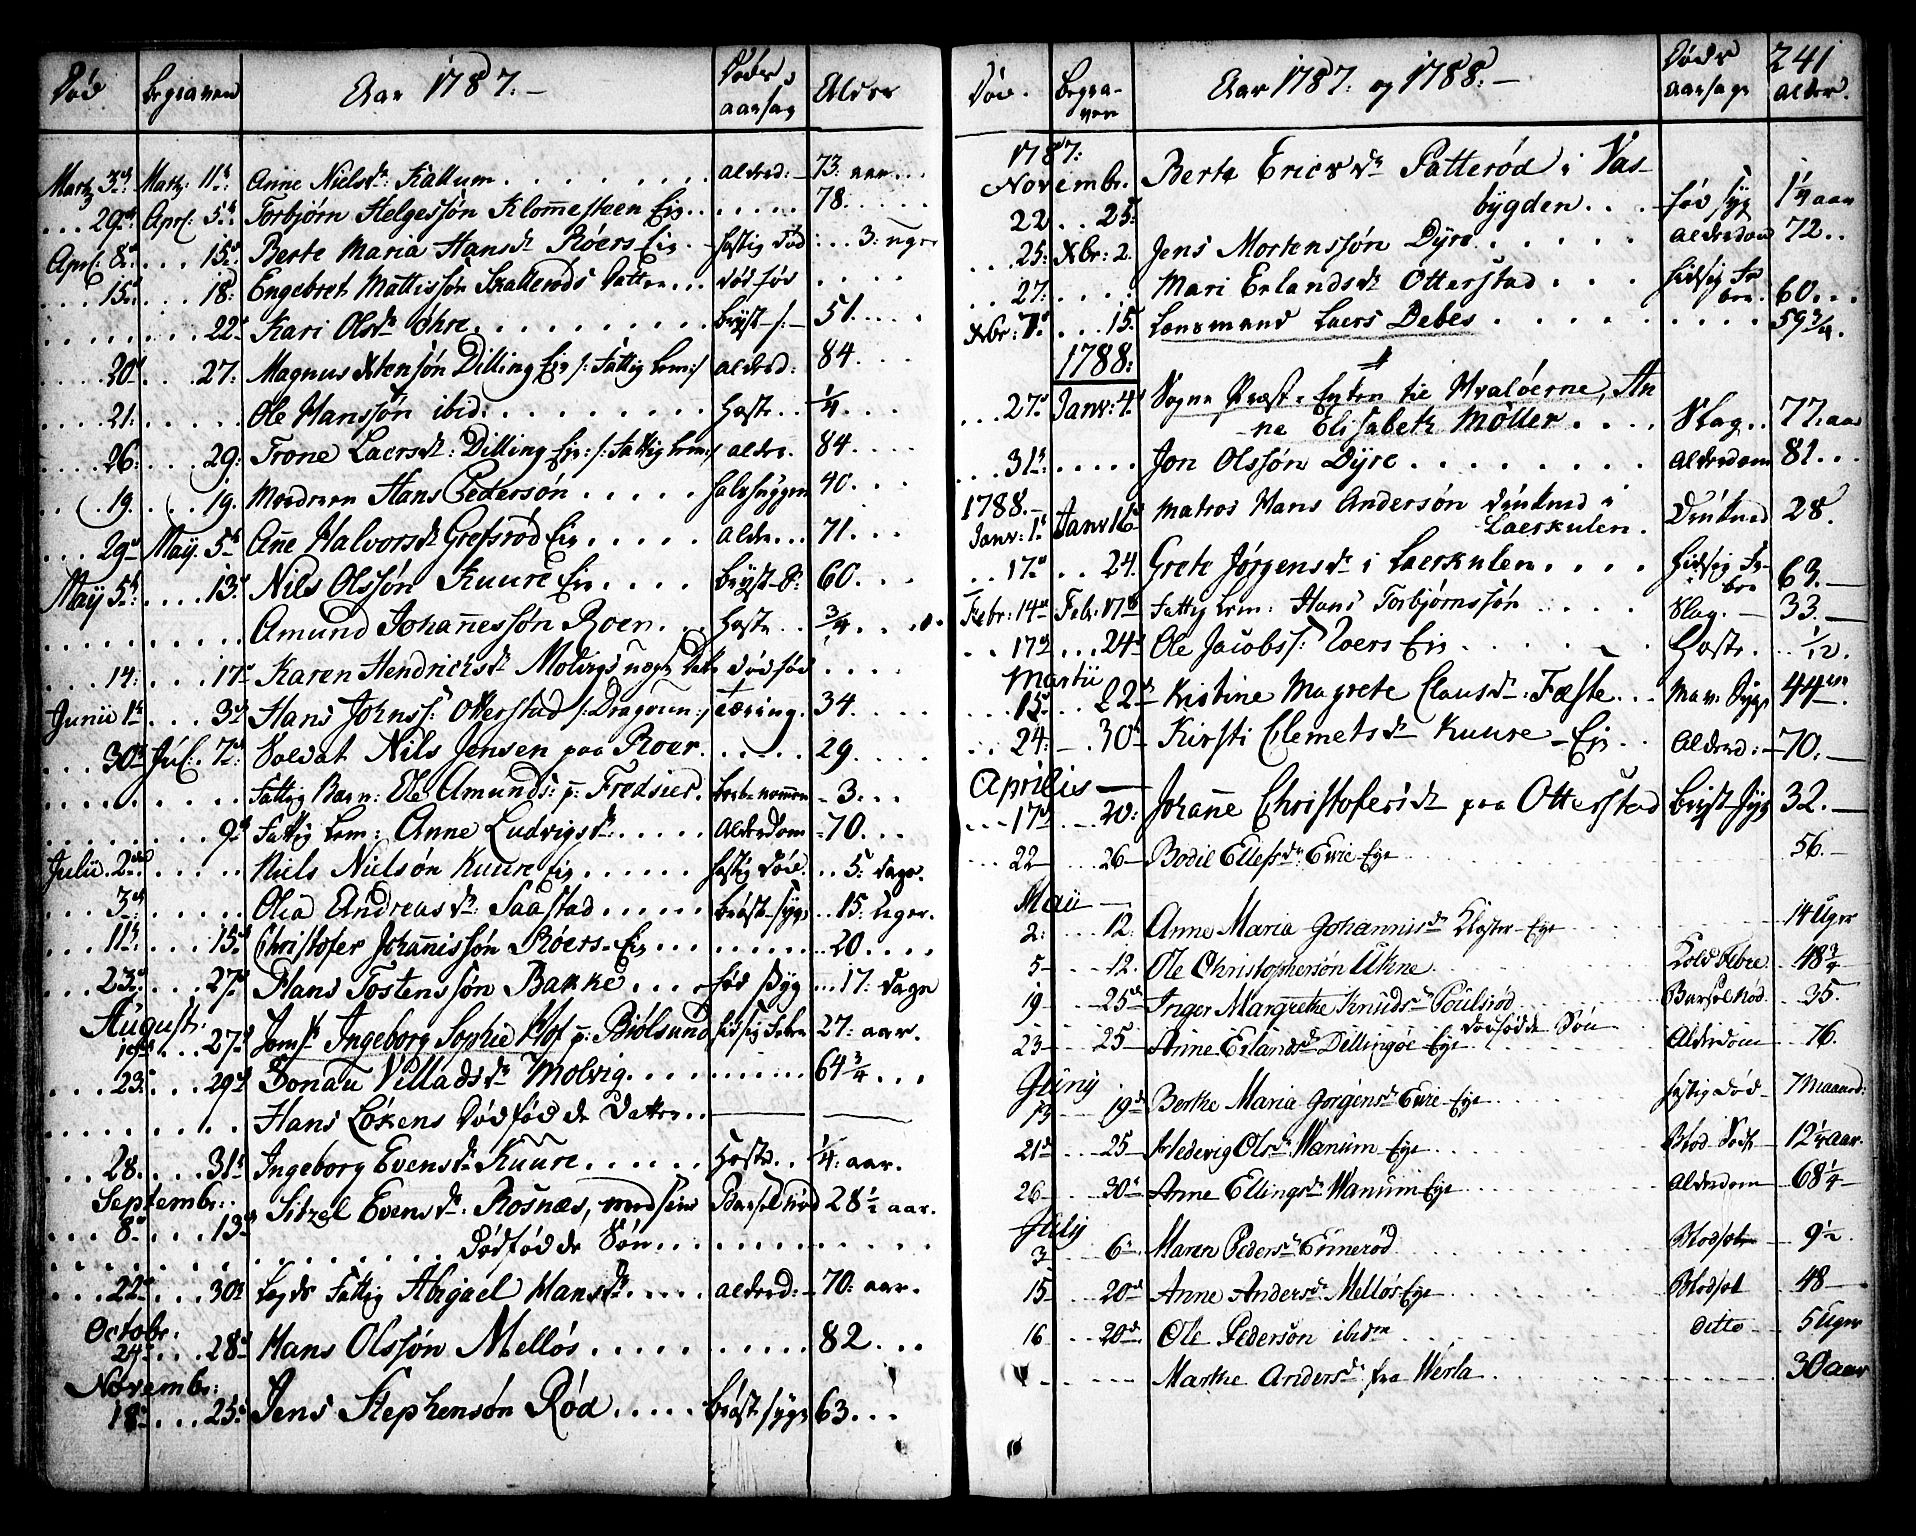 Død Begraven Aar 1787.— Døds aarsag Alder
Martz 3d: Martz. 11t: Anne Nielsdr. Kallum . . . alderd: 73. aar
. . 29de: Apri: 5t: Torbjørn Helgessøn Klommesteen Eie . . . 78.
Apri: 8de . . . 15de: Berte Maria Hansdr Roers Eie . hastig død . . 3: uger
. . . 15de . . . 18: Engebret Mattissøn Skallerøds Datter . . død fød
. . . 22de Kari Olsdr Øhre . . . Bryst-s:— 51.
. . . 20de . . . 27: Magnus Xstensøn Dilling Eie /: Fattig Lem:/ alderd: 84
. . . 21: Ole Hanssøn ibid. . . . Hoste . . ¼
. . . 26: . . . 29: Trone Laersdr: Dilling Eie: /: Fattig Lem:/ alder. 84
. . . 19. . . . 19. Hans Pedersøn . . . 40
. . . 29de May. 5t Añe Halvorsdr Grefsrød Eie . . . Alder . . . 71.
May 5t: . . . 13de Nils Olssøn Kuure Eie . . . Bryst-S: 60
. . . Amund Johañessøn Roer . . . Hoste . . ¾
. . . 14: . . . 17de Karen Hendrichsdr Molvigs Datt dødfød
Junii 1t . . . 3de Hans Johnss: Otterstad /: Dragoun:/ Tæring. 34
. . . 30de Jul: . 7de: Soldat Nils Jensen paa Roer . . . 29
. . . Fattig Barn: Ole Amunds: p: Fredsier. 3
. . . 9de Fattig Lem: Anne Ludvigsdr: . . . Alderdom 70
Julii. 2de . . . Niels Nielsøn Kuure Eie . . . hastig Død. 5: dage.
. . . 3de . . . Olea Andreasdr: Saastad . . . Brøst-syge 15: Uger.
. . . 11t . . . 15de Christofer Johañissøn Roers-Eie . . . 20
. . . 23de . . . 27de Hans Tostenssøn Bakke . . . fød Syg . . 17: Dage
August:
19de . . . 27de Jomfr Ingeborg Sophie Hof p: Biølsund hidsig Feber 27: aar.
. . . 23: . . . 29de Donau Villadsdr Molvig . . . 64¾
. . . Hans Løkens Dødfødde Datter . . .
. . . 28. . . . 31t Ingeborg Evensdr Kuure . . . Hoste . . ¼: aar.
Septembr:
8de . . . 13de Sitzel Evensdr: Rosnæs, med sin Barselnød 28½ aar.
. . . Dødfødde Søn . . .
. . . 22de . . . 30te Fattig Abigael Hansdr . . . alderd: 70: aar.
Octobr:
24: . . . 28de Hans Olssøn Melløs . . . 82
Novembr:
18de . . . 25de Jens Stephensøn Rød . . . Brøst syge 63

241
Døde. Begraven Aar 1787: og 1788:— Døds aarsage alder.
1787:
Novembr. Berte Ericsdr Patterød i Vas-
22 . . 25: bygden . . . fød syg 1¼ aar
. . . 25: Xbr: 2. Jens Mortenssøn Dyre . . . Alderdom 72
. . 27: . . . Mari Erlandsdr Otterstad . . . Hidsig Feber. 60
Xbr: 7de . . . 15: Lensmand Laers Debes . . . 59¾
1788:
. . . 27de Janv: 4de Sogne Præst-Enken til Hvaløerne, An
ne Elisabeth Møller . . . Slag . . 77 aar
. . . 31t: . . . Jon Olssøn Dyre . . . Alderdom 81
1788.—
Janv: 1t Janv 16de Matros Hans Andersøn druknet i Laerkulen. Druknet 28.
. . 17de . . 24. Grete Jørgensdr i Laerkulen . . . Hidsig Feber 63.—
Febr: 14de Feb: 17de Fattig Lem: Hans Torbjørnssøn . . . Slag.— 33.—
. . 17de . . . 24de Ole Jacobss: Roers Eie . . . Hoste. 1/12.
Martii
. . . 15 . . . 22de Kristine Magrete Clausdr: Fæste . . . Mav. Syge 44
. . 24: . . 30te Kirsti Clemetsdr Kuure-Eie . . Alderd:— 70.—
Aprilis—
. . . 17de . . . 20: Johañe Christofersdr paa Otterstad Bryst-syg 32.—
. . . 22 . . . 26 Bodil Ellefsdr: Evie Eye 56.—
Maii—
2: . . . 12. Anne Maria Johannisdr Kloster-Eye 14 Uger
5 . . . 12. Ole Christophersøn Ukne . . . Kold Febre 48¾
19 . . . 25de Inger Margrethe Knudsdr Poulsrød dødfødde Søn Barselnød. 35.
23 . . . 25 Anne Erlandsdr Dillingøe Eye . . . Alderdom 76.
Junij
13 . . . 19de Berthe Maria Jørgensdr Evie Eye hastig Død 7 Maaned:
21de . . . 25 Hedevig Olsdr Wanum Eye . . . Blod Sodt 12½ aar.
26 . . . 30te Anne Ellingsdr Wanum Eye . . . Alderdom 68¼
Julij
3 . . . 6te Maren Pedersdr Ennerød . . . Blodsot 9½.
15 . . . 20de Anne Andersdr Melløs Eye . . . Blodsot 48—
16 . . . 20de. Ole Pedersøn ibidm . . . ditto 5 Uger
. . . Marthe Andersdr fra Werla 30 aar